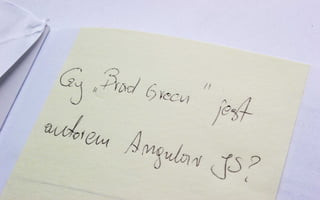 Czy „Brad Green" jest
autorem Angular JS?